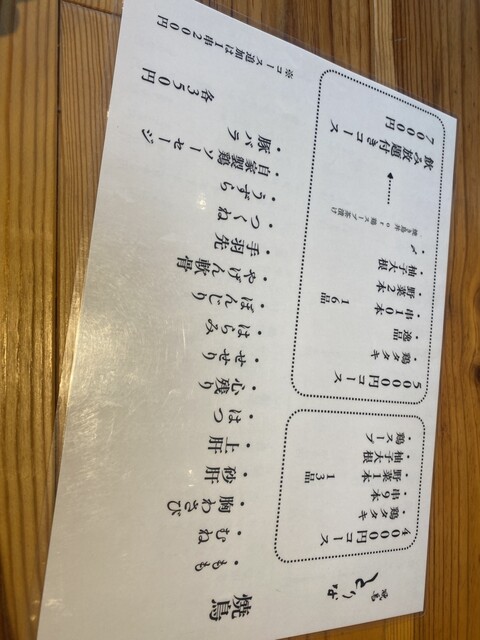 焼鳥 とりな
4000円コース
・鶏タタキ
・串9本
・野菜1本
・柚子大根
・鶏スープ
13品
5000円コース
・鶏タタキ
・逸品
・串10本
・野菜2本
・柚子大根
・〆
焼き鳥丼or鶏スープ茶漬け
16品
飲み放題付きコース
7000円
焼鳥
・もも
・むね
・胸わさび
・砂肝
・上肝
・はつ
・心残り
・せせり
・はらみ
・ぼんじり
・やげん軟骨
・手羽先
・つくね
・うずら
・自家製鶏ソーセージ
・豚バラ
各350円
※コース追加は1串200円